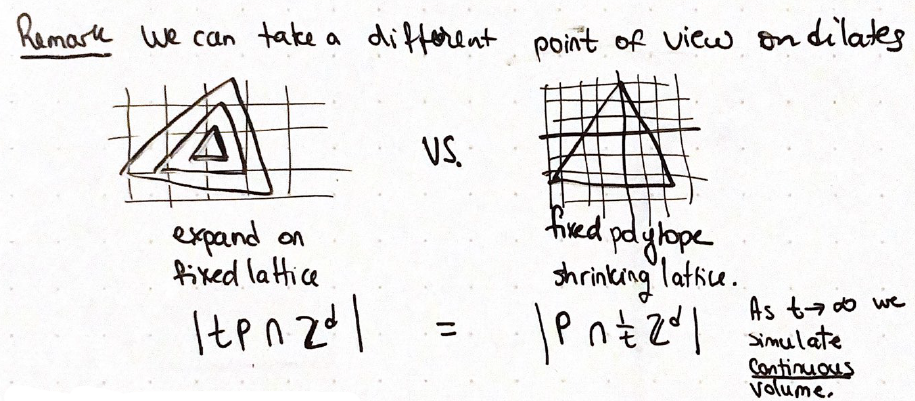 Remark We can take a different point of view on dilates
vs.
expand on
fixed lattice
fixed polytope
shrinking lattice.
|tP ∩ ℤ^d| = |P ∩ 1/t ℤ^d|
As t→∞ we
simulate
continuous
volume.